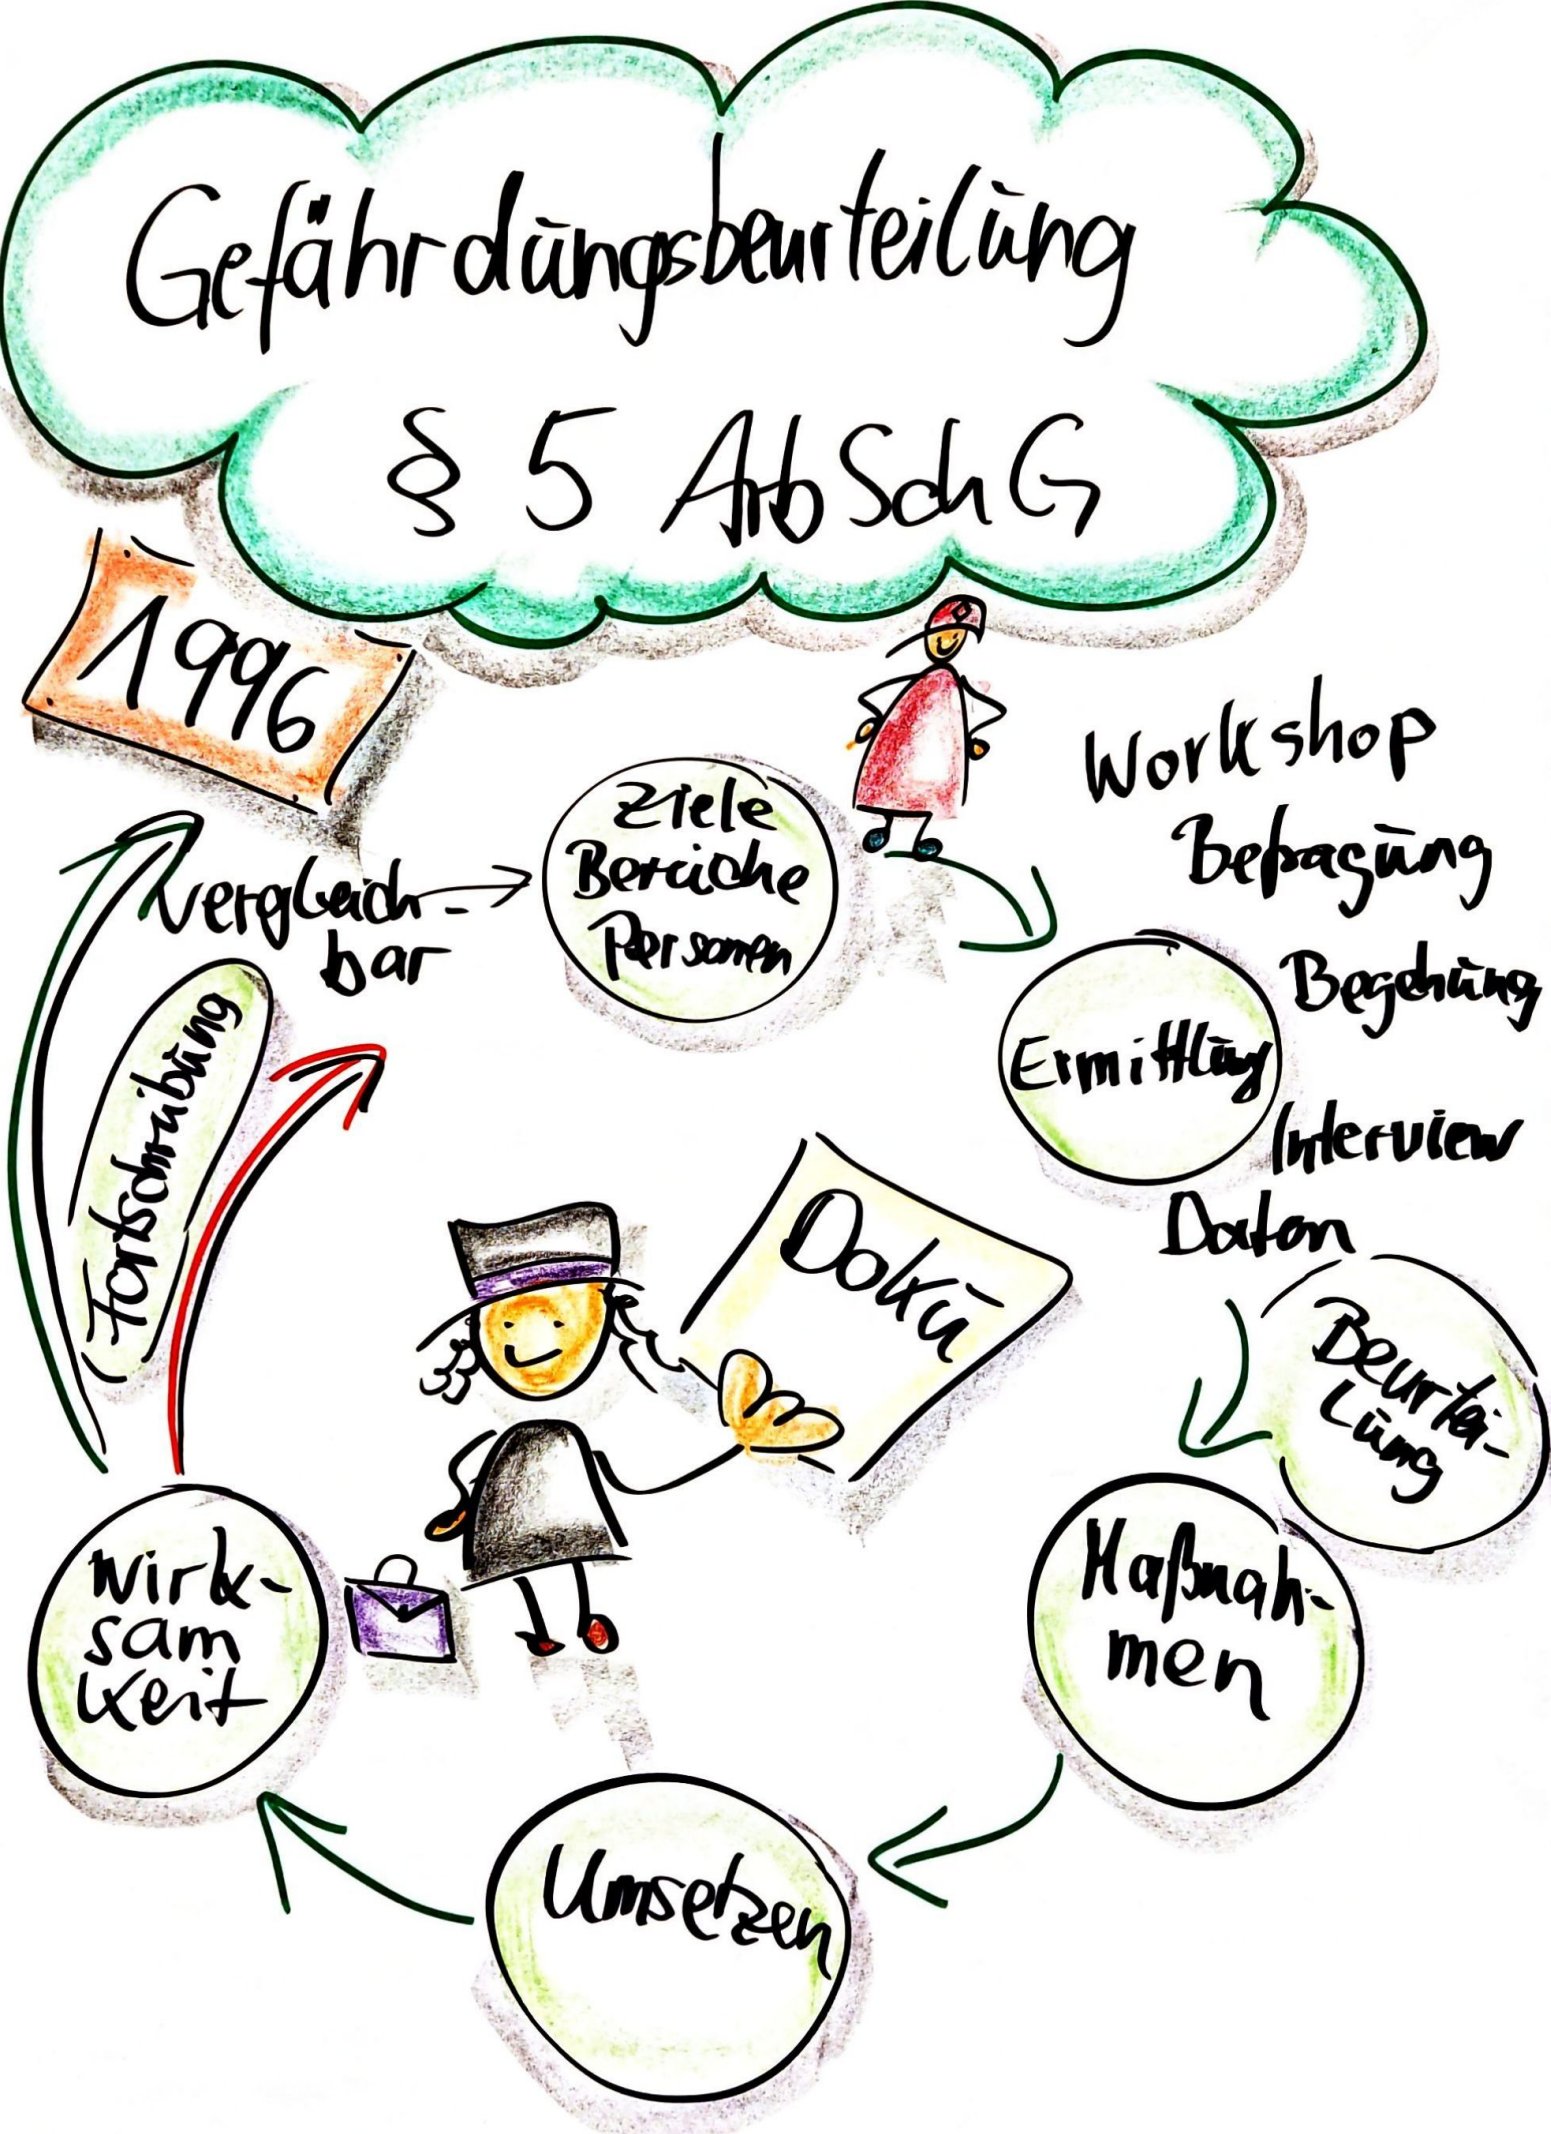 Gefährdungsbeurteilung
§ 5 ArbSchG
1996
vergleich-
bar
Ziele
Bereiche
Personen
Workshop
Befragung
Begehung
Ermittlung
Interview
Daten
Beurtei-
lung
Maßnah-
men
Umsetzen
Wirk-
sam
keit
Fortschreibung
Doku